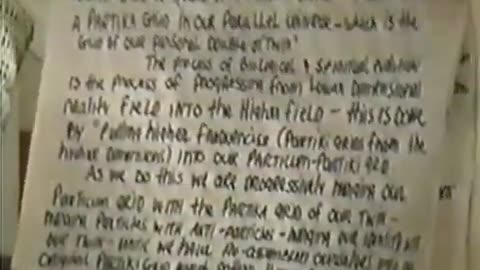 A PARTIKI GRID IN OUR PARALLEL UNIVERSE - WHICH IS THE
GRID OF OUR PERSONAL DOUBLE OR TWIN"
The process of Biological & Spiritual Evolution
IS the process of progressing from Lower Dimensional
reality FIELD INTO the Higher Field - this is DONE
By "Pulling higher Frequencies (Partiki Grids from the
higher Dimensions) INTO OUR PARTICUM-PARTIKI GRID.
As we do this we are progressively merging our
Particum GRID with the PARTIKA GRID of OUR TWIN -
merging Particles with ANTI-Particles - merging our identity with
our Twin - until we have Re-assembled ourselves
ORIGINAL PARTIKI GRID